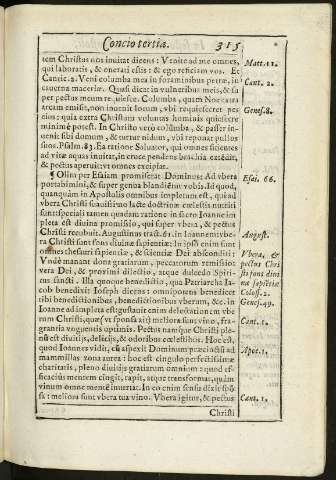 Concio tertia. 315
tem Christus nos inuitat dicens: Venite ad me omnes,
qui laboratis, & onerati estis: & ego reficiam vos. Et
Cantic. 2. Veni columba mea in foraminibus petræ, in
cauerna maceriæ. Quasi dicat in vulneribus meis, & su
per pectus meum requiesce. Columba, quam Noe extra
arcam emisit, non inuenit locum, vbi requiesceret pes
eius: quia extra Christum voluntas hominis quiescere
minimè potest. In Christo verò columba, & passer in-
uenit sibi domum, & turtur nidum, vbi reponat pullos
suos. Psalm. 83. Ea ratione Saluator, qui omnes scientes
ad vitæ aquas inuitat, in cruce pendens brachia extēdit,
& pectus aperuit vt omnes excipiat.
¶ Olim per Esaiam promiserat Dominus: Ad vbera
portabimini, & super genua blandiētur vobis. Id quod,
quamquam in Apostolis omnibus impletum est, quando
vbera Christi suauissimo lacte doctrinæ cœlestis nutriti
sunt: speciali tamen quadam ratione in sacro Ioanne im
pleta est diuina promissio, qui super vbera, & pectus
Christi recubuit. Augustinus tract. 61. in Ioannem: vbe
ra Christi sunt fons diuinæ sapientiæ: In ipso enim sunt
omnes thesauri sapientiæ, & scientiæ Dei absconditi:
Vnde manant dona gratiarum, peccatorum remissio:
vera Dei, & proximi dilectio, atque dulcedo Spiri-
tus sancti. Illa quoque benedictio, qua Patriarcha Ia-
cob benedixit Ioseph dicens: omnipotens benedicet
tibi benedictionibus, benedictionibus vberum, &c. in
Ioanne adimpleta est: gustauit enim delectationem vbe
rum Christi, quæ (vt sponsa ait) meliora sunt vino, fra-
grantia vnguentis optimis. Pectus namque Christi ple-
num est diuitijs, delicijs, & odoribus cœlestibus. Hoc est,
quod Ioannes vidit, cū aspexit Dominum præcinctū ad
mammillas zona aurea: hoc est cingulo perfectissimæ
charitatis, pleno diuitijs gratiarum omnium: quod ef-
ficaciùs mentem cingit, rapit, atque transformat, quàm
vinum omne mente inuertat. In eo enim sensu dixit spō
sa: meliora sunt vbera tua vino. Vbera igitur, & pectus
Christi
Matt. 11.
Cant. 2.
Genes. 8.
Esai. 66.
August.
Vbera, &
pectus Chri
sti fons diui
næ sapiētiæ
Coloss. 2.
Genes. 49.
Cant. 1.
Apoc. 1.
Cant. 1.